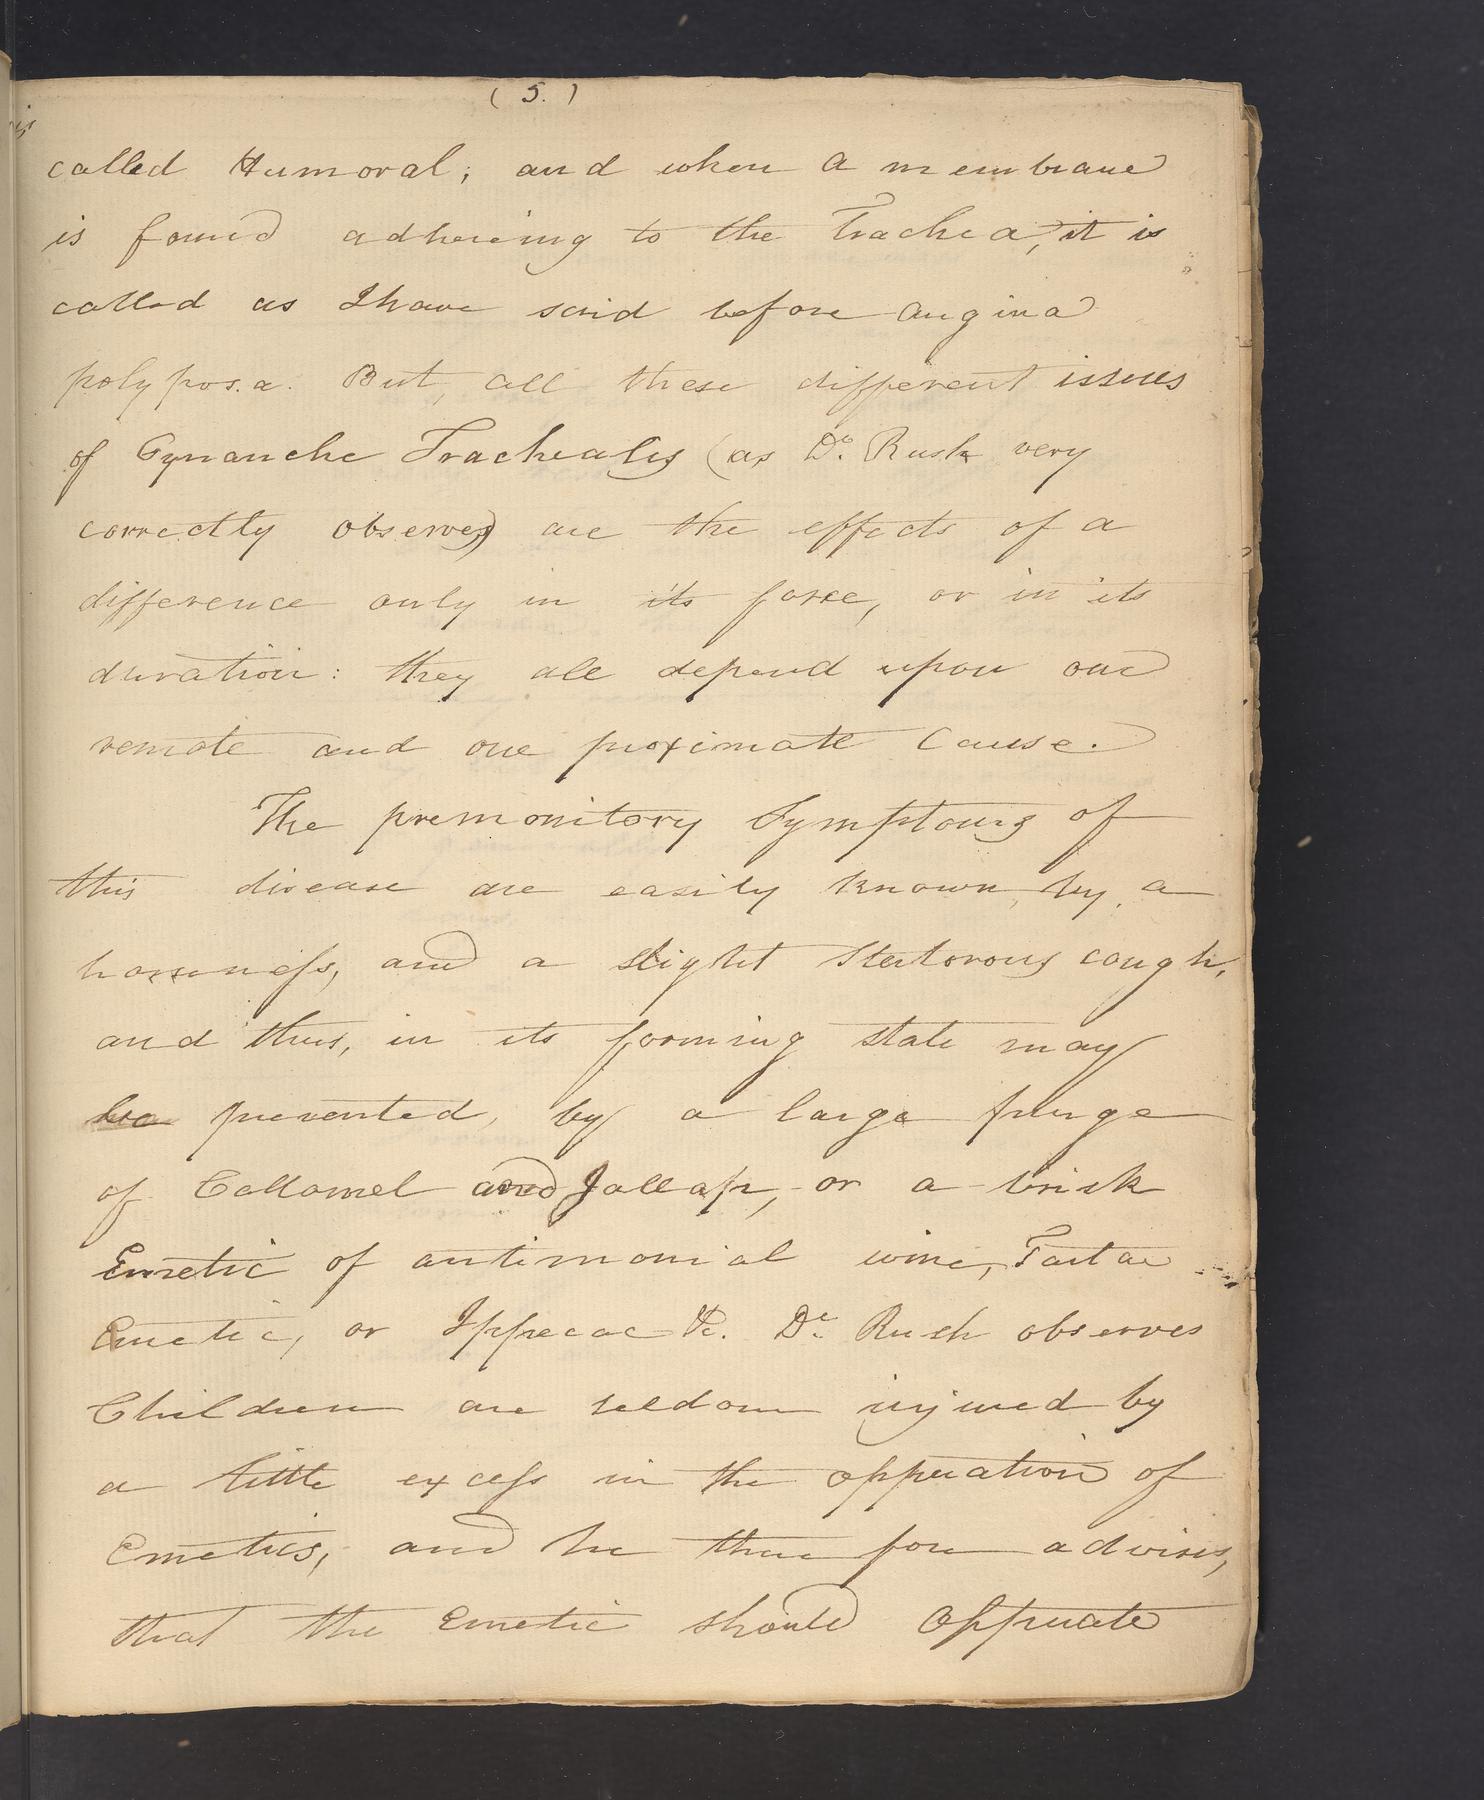 ( 5. )
called Humoral; and when a membrane
is found adhereing to the Trachea, it is
called as I have said before angina
polyposa. But, all these different issues
of Cynanche Trachealis (as Dr. Rush very
correctly observes) are the effects of a
difference only in its force, or in its
duration: they all depend upon one
remote and one proximate Cause.
The premonitory Symptoms of
this disease are easily known, by, a
horseness, and a slight Stertorous cough,
and thus, in its forming state may
be prevented, by a large purge
of Callomel and Jallap, or a brisk
Emetic of antimonial wine, Tartar
Emetic, or Ippecac &c. Dr. Rush observes
Children are seldom injured by
a little excess in the opperation of
Emetics, and he there fore advises,
that the Emetic should opperate